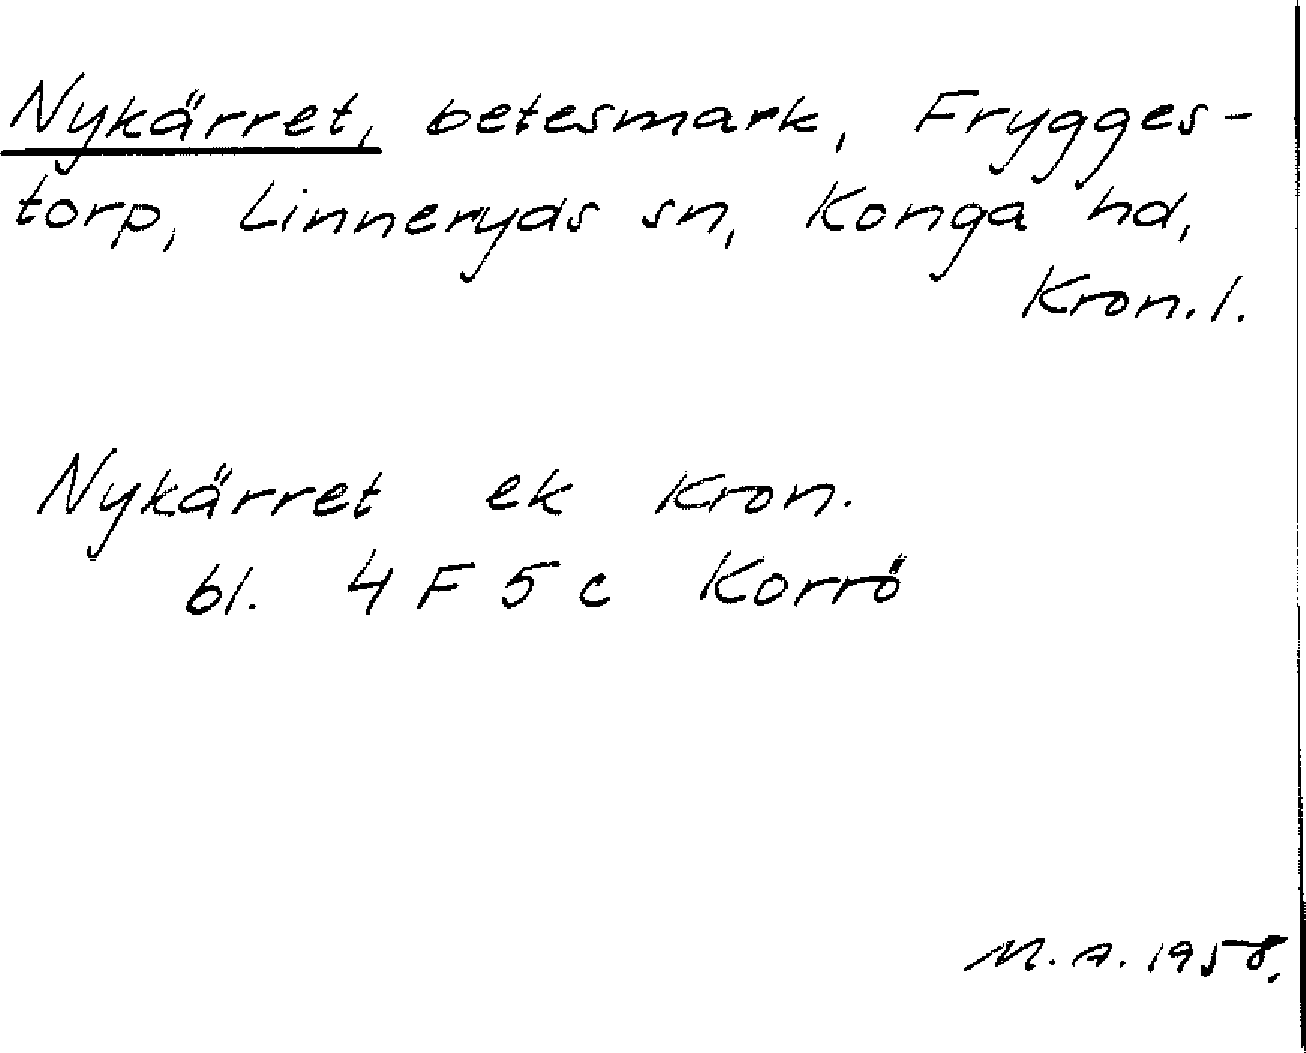 Nykärret, betesmark, Frygges-
torp, Linneryds sn, Konga hd,
Kron. l.
Nykärret ek Kron.
bl. 4 F 5 c Korrö
M. A. 1958.